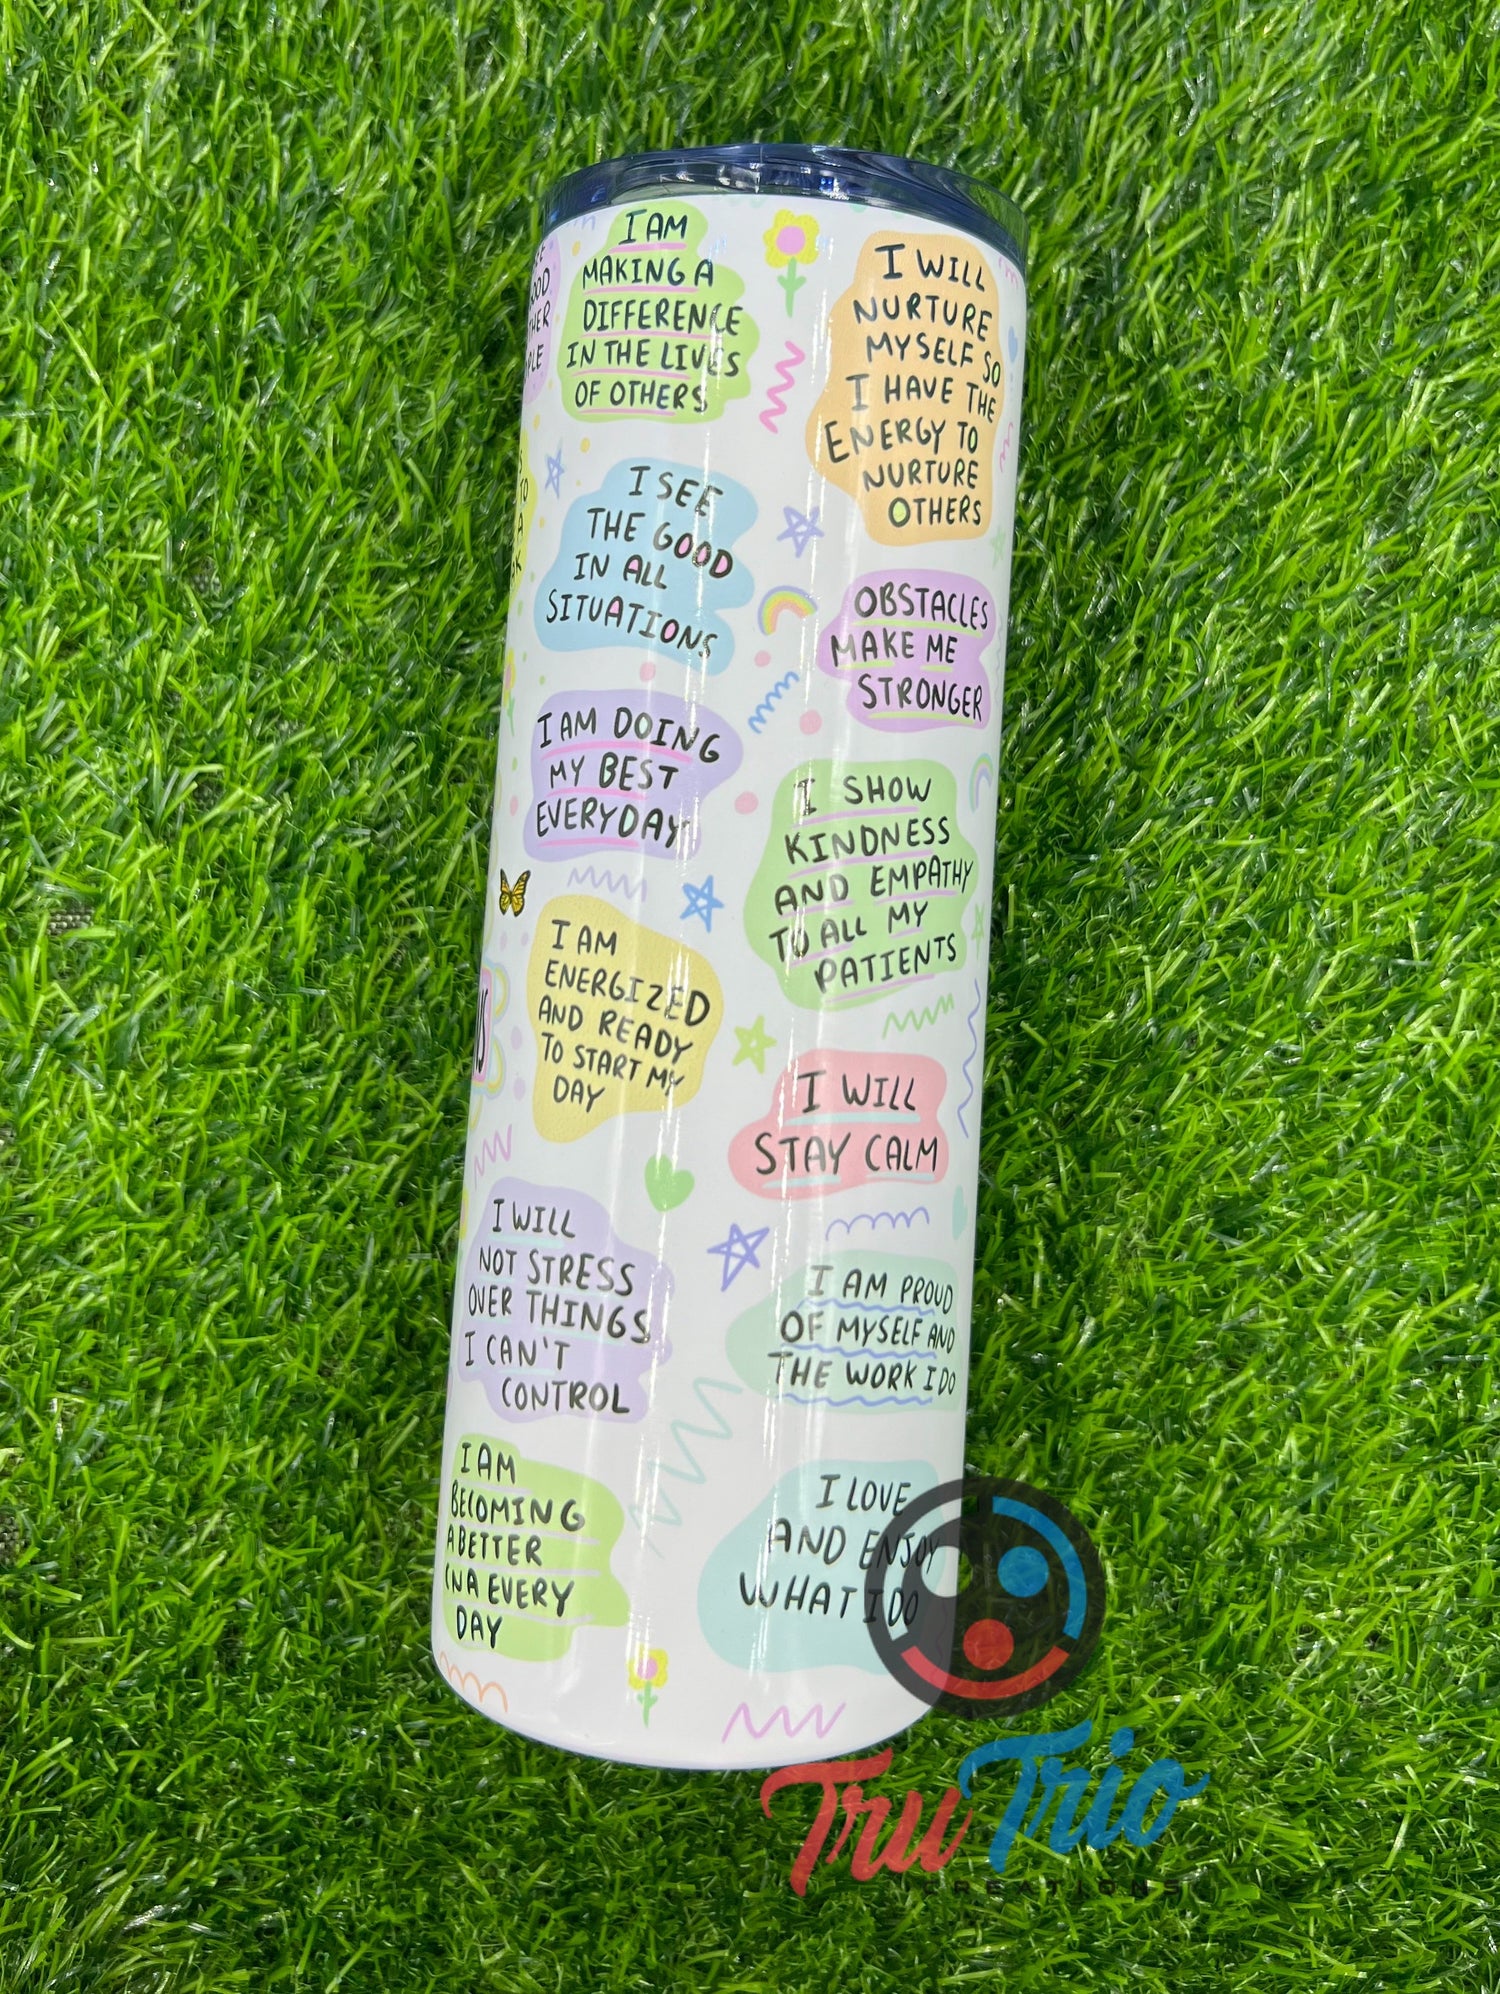 I AM
MAKING A
DIFFERENCE
IN THE LIVES
OF OTHERS
I SEE
THE GOOD
IN ALL
SITUATIONS
I AM DOING
MY BEST
EVERYDAY
I AM
ENERGIZED
AND READY
TO START MY
DAY
I WILL
NOT STRESS
OVER THINGS
I CAN'T
CONTROL
I AM
BECOMING
A BETTER
CNA EVERY
DAY
I WILL
NURTURE
MYSELF SO
I HAVE THE
ENERGY TO
NURTURE
OTHERS
OBSTACLES
MAKE ME
STRONGER
I SHOW
KINDNESS
AND EMPATHY
TO ALL MY
PATIENTS
I WILL
STAY CALM
I AM PROUD
OF MYSELF AND
THE WORK I DO
I LOVE
AND ENJOY
WHAT I DO
TruTrio
CREATIONS